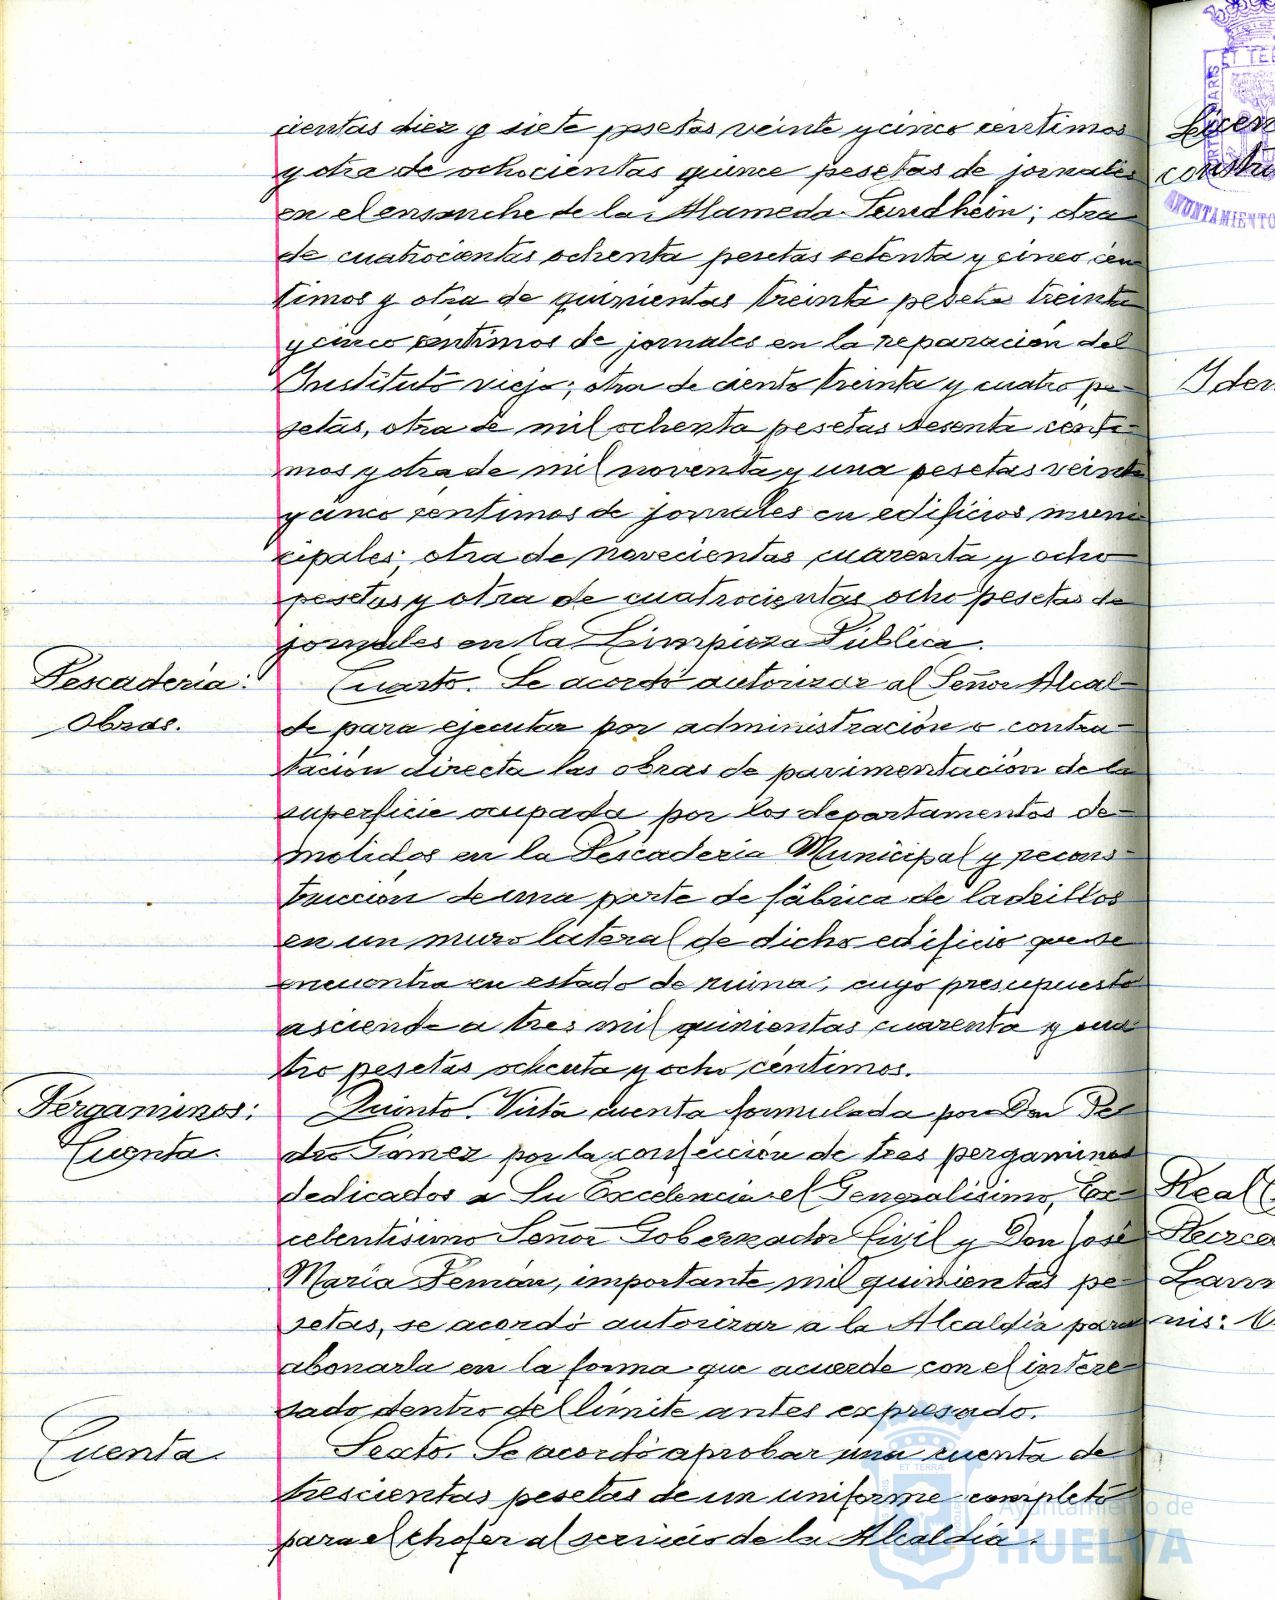 cientas diez y siete pesetas veinte y cinco céntimos
y otra de ochocientas quince pesetas de jornales
en el ensanche de la Alameda Sundhein; otra
de cuatrocientas ochenta pesetas setenta y cinco cén
timos y otra de quinientas treinta pesetas treinta
y cinco céntimos de jornales en la reparación del
Instituto viejo; otra de ciento treinta y cuatro pe-
setas, otra de mil ochenta pesetas sesenta cénti-
mos y otra de mil noventa y una pesetas veinte
y cinco céntimos de jornales en edificios muni
cipales; otra de novecientas cuarenta y ocho
pesetas y otra de cuatrocientas ocho pesetas de
jornales en la Limpieza Pública.
Pescadería:
Obras.
Cuarto. Se acordó autorizar al Señor Alcal-
de para ejecutar por administración o contra-
tación directa las obras de pavimentación de la
superficie ocupada por los departamentos de-
molidos en la Pescaderia Municipal y recons-
trucción de una parte de fábrica de ladrillos
en un muro lateral de dicho edificio que se
encuentra en estado de ruina, cuyo presupuesto
asciende a tres mil quinientas cuarenta y cua
tro pesetas ochenta y ocho céntimos.
Pergaminos:
Cuenta.
Quinto. Vista cuenta formulada por Don Pe
dro Gómez por la confección de tres pergaminos
dedicados a Su Excelencia el Generalísimo, Ex-
celentísimo Señor Gobernador Civil y Don José
María Pemán, importante mil quinientas pe-
setas, se acordó autorizar a la Alcaldía para
abonarla en la forma que acuerde con el intere-
sado dentro del límite antes expresado.
Cuenta.
Sexto. Se acordó aprobar una cuenta de
trescientas pesetas de un uniforme completo
para el chofer al servicio de la Alcaldía.
Licen
constru
Idem
Real
Decreto
nis:
ET TER
AYUNTAMIENTO
Ayuntamiento de
HUELVA